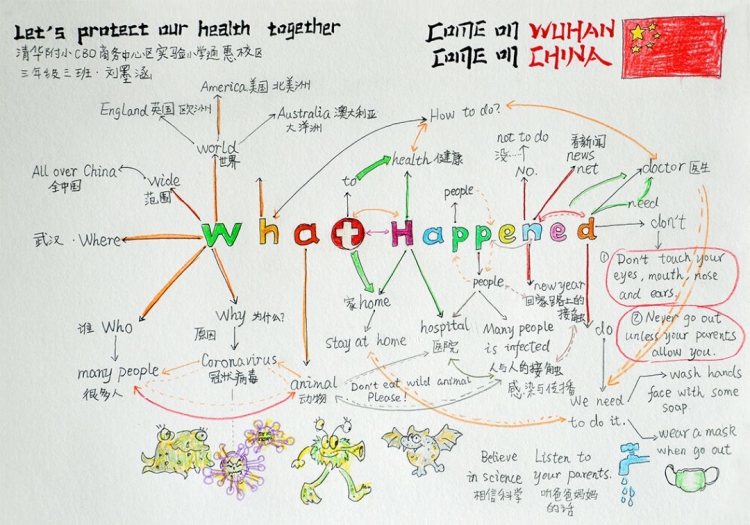 Let's protect our health together
COME ON WUHAN
清华附小CBD商务中心区实验小学通惠校区
COME ON CHINA
三年级三班·刘墨涵
America 美国 北美洲
England 英国 欧洲
Australia 澳大利亚
大洋洲
How to do?
world
世界
not to do
没
NO.
看新闻
news
net
health 健康
doctor 医生
All over China
全中国
wide
范围
to
people
need
don't
武汉·Where
What Happened
① Don't touch your
eyes, mouth, nose
and ears.
people
new year
家 home
谁 Who
Why 为什么?
原因
hospital
医院
Many people
is infected
人与人的接触
感染与传播
do
② Never go out
unless your parents
allow you.
Stay at home
many people
很多人
Coronavirus
冠状病毒
animal
动物
Don't eat wild animal
Please!
We need
to do it.
wash hands
face with some
soap
wear a mask
when go out
Believe
in science
相信科学
Listen to
your parents.
听爸爸妈妈
的话